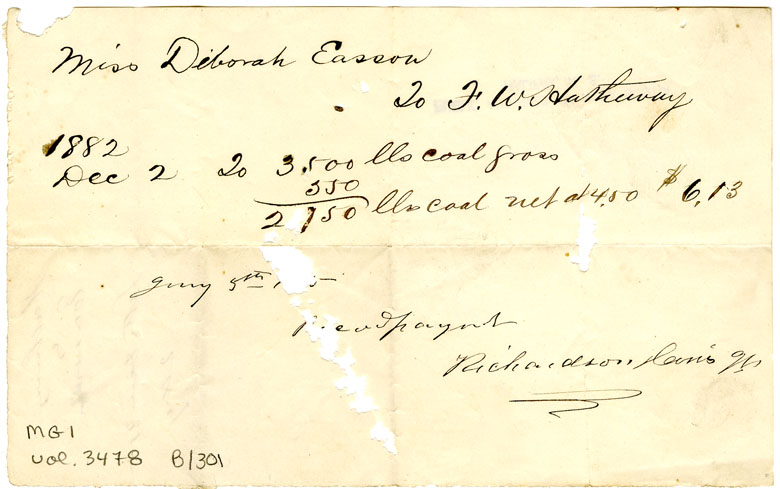 Miss Deborah Easson
To F. W. Hatheway
1882
Dec 2 To 3,500 lbs coal gross
2750 lbs coal net at 4.50 $6.13
Jany 5th
Recd paynt
Richardson
MG1
vol. 3478 B/301